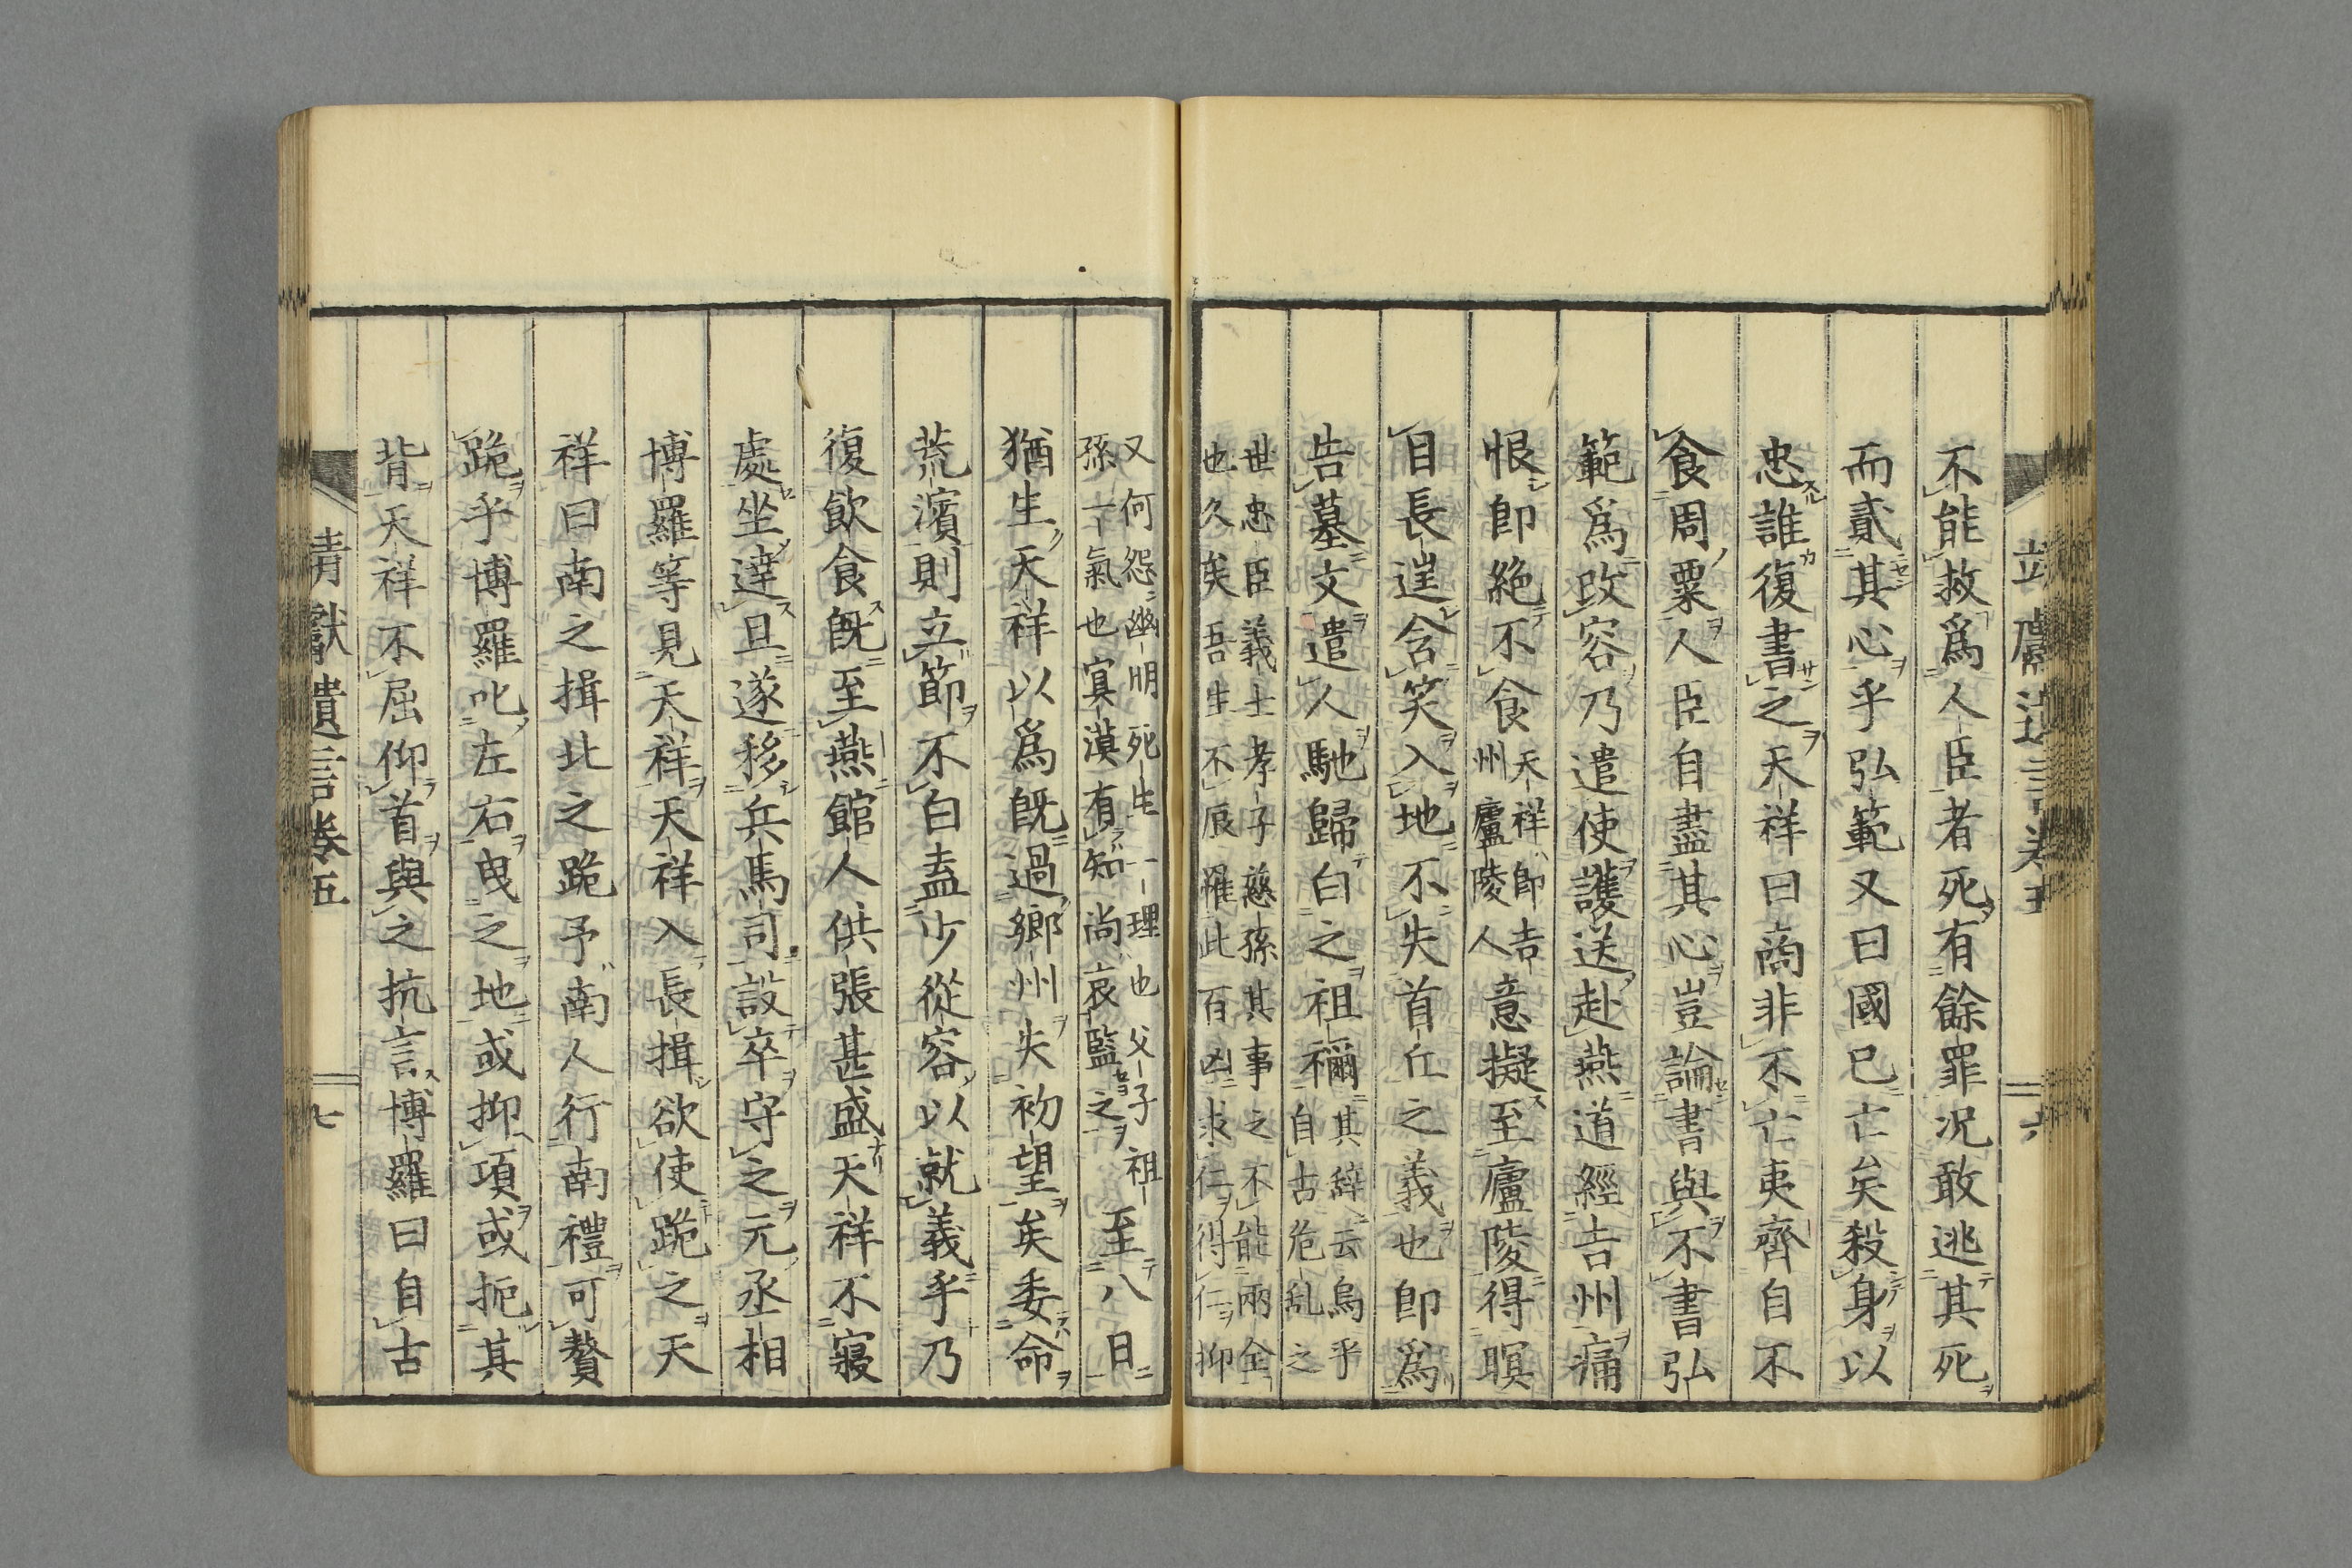 不能救爲人臣者死有餘罪況敢逃其死
而貳其心乎弘範又曰國已亡矣殺身以
忠誰復書之天祥曰商非不亡夷齊自不
食周粟人臣自盡其心豈論書與不書弘
範爲改容乃遣使護送赴燕道經吉州痛
恨卽絶不食天祥卽吉州廬陵人意擬至廬陵得瞑
目長逝含笑入地不失首丘之義也卽爲
告墓文遣人馳歸白之祖禰其辭云烏乎自古危乱之
世忠臣義士孝子慈孫其事之不能兩全
也久矣吾生不辰罹此百凶求仁得仁抑
又何怨幽明死生一理也父子祖
孫一氣也冥漠有知尚哀監之至八日
猶生天祥以爲旣過鄉州失初望矣委命
荒濱則立節不白盍少從容以就義乎乃
復飮食旣至燕館人供張甚盛天祥不寢
處坐達旦遂移兵馬司設卒守之元丞相
博羅等見天祥天祥入長揖欲使跪之天
祥曰南之揖北之跪予南人行南禮可贅
跪乎博羅叱左右曳之地或抑項或扼其
背天祥不屈仰首與之抗言博羅曰自古
靖獻遺言卷五
七